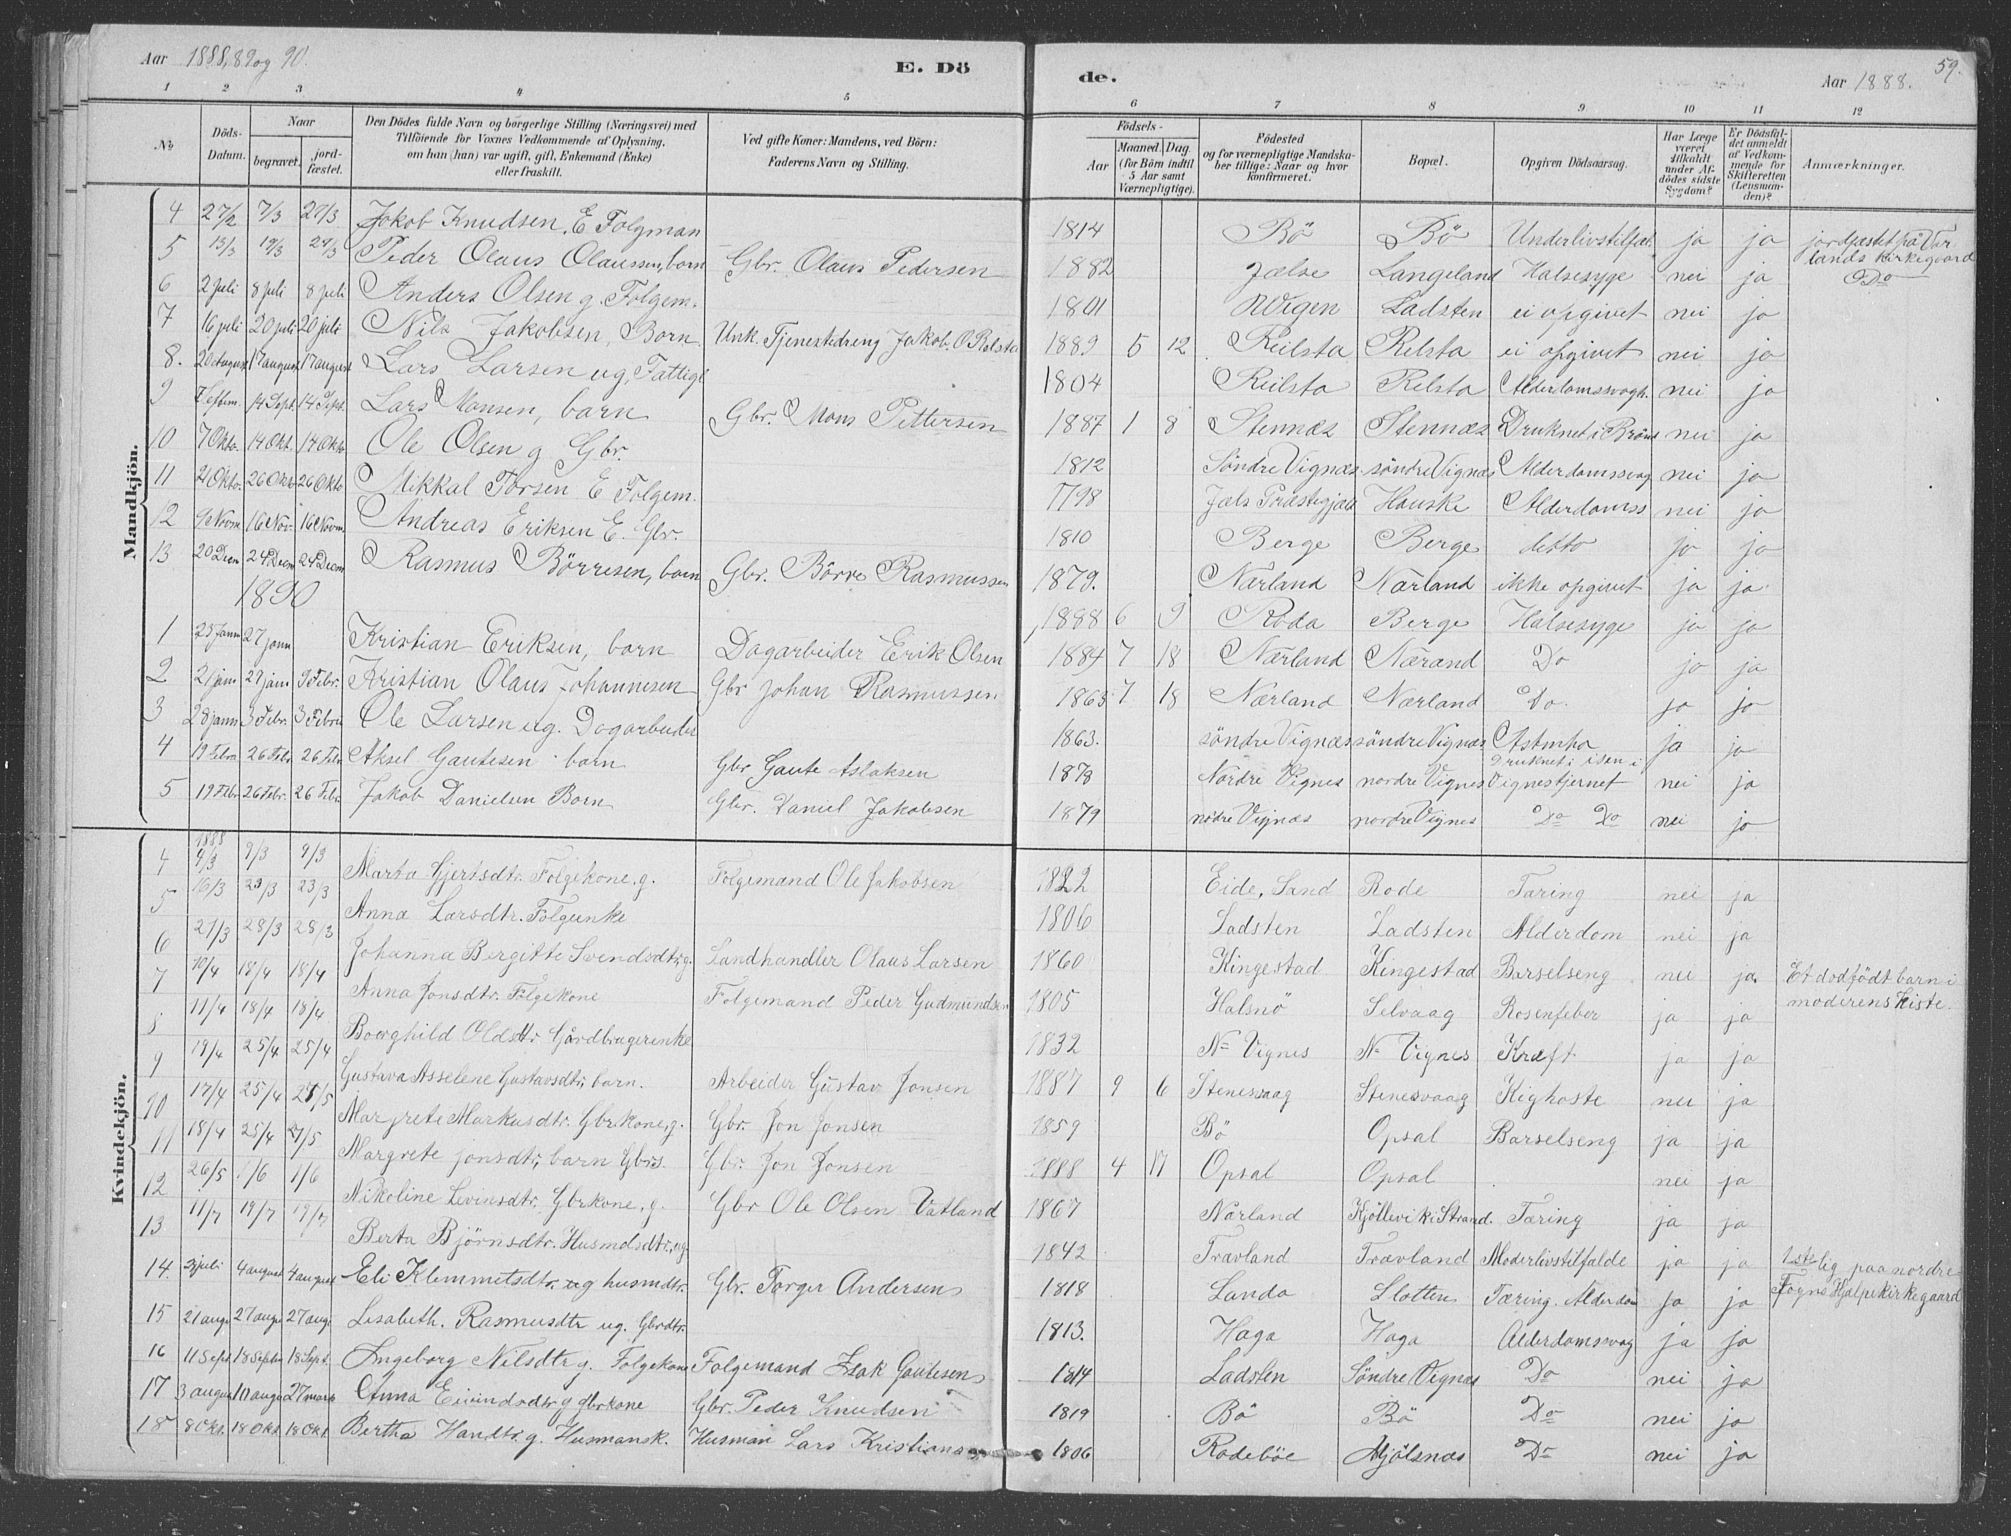 Aar 1888, 89 og 90.
E. Dö
de.
Aar 1888.
59.
1 2 3 4 5 6 7 8 9 10 11 12
No
Döds-Datum.
Naar
begravet.
jord-fæstet.
Den Dödes fulde Navn og borgerlige Stilling (Næringsvei) med
Tilföiende for Voxnes Vedkommende af Oplysning,
om han (hun) var ugift, gift, Enkemand (Enke)
eller fraskilt.
Ved gifte Koner: Mandens, ved Börn:
Faderens Navn og Stilling.
Födsels-
Aar
Maaned. Dag
(for Börn indtil
5 Aar samt
Værnepligtige).
Födested
og for værnepligtige Mandska-
ber tillige: Naar og hvor
konfirmeret.
Bopæl.
Opgiven Dödsaarsag.
Har Læge
været
tilkaldt
under Af-
dödes sidste
Sygdom?
Er Dödsfal-
det anmeldt
af Vedkom-
mende for
Skifteretten
(Lensman-
den)?
Anmærkninger.
Mandkjön.
4 27/2 7/3 27/3 Jakob Knudsen, E Folgman 1814 Bö Bö Underlivstilfæl. ja ja jordfæstet på Var
lands Kirkegaard
5 13/3 19/3 27/3 Peder Olaus Olaussen, barn Gbr. Olaus Pedersen 1882 Jælse Langeland Halsesyge nei ja Do
6 2 Juli 8 juli 8 juli Anders Olsen g. Folgem. 1801 Ladsten ei opgivet nei ja
7 16 juli 20 juli 20 juli Nils Jakobsen, Barn Unk. Tjenestedreng Jakob O Relsta 1889 5 12 Reilsta Relsta ei opgivet nei ja
8. 17 august 17 august Lars Larsen ug. Fattigl 1804 Reilsta Relsta Alderdomssvagh. nei ja
9 14 Sept. 14 Sept. Lars Monsen, barn Gbr. Mons Pettersen 1887 1 8 Stennæs Stennæs Druknet i Brönd nei ja
10 7 Okto. 14 Okt. 14 Okto Ole Olsen g Gbr. 1812 Söndre Vignæs söndre Vignæs Alderdomssvag nei ja
11 21 Okto. 26 Okto 26 Okto Mikkal Torsen E Folgem. 1798 Jæls Præstegjæld Hauske Alderdomss nei ja
12 9 Novm 16 Nov. 16 Novm Andreas Eriksen E. Gbr. 1810 Berge Berge detto ja ja
13 20 Decm 24 Decm 24 Decm Rasmus Börresen, barn Gbr. Börre Rasmussen 1879. Nærland Nærland ikke opgivet ja ja
1890
1 23 Jann 27 jann Kristian Eriksen, barn Dagarbeider Erik Olsen 1888 6 9 Roda Berge Halsesyge ja ja
2 21 jan 27 jan 3 Febr. Kristian Olaus Johannesen Gbr Johan Rasmussen 1884 7 18 Nærland Nærand Do ja ja
3 28 jann 3 Febr. 3 Febru Ole Larsen ug. Dagarbeider 1865 7 18 Nærland Nærland Do. ja ja
4 19 Febru 26 Febr 26 Febr Aksel Gautesen barn Gbr Gaute Aslaksen 1863. söndre Vignæs söndre Vignæs Astmha ja ja
5 19 Febr 26 Febr. 26 Febr Jakob Danielsen Born Gbr. Daniel Jakobsen 1878 Nordre Vignes nordre Vignes Druknet i isen i
Vignestjernet nei ja
1879 nödre Vignæs nordre Vignes Do Do nei ja
Kvindekjön.
1888
4 9/3 9/3 Marta Gjertsdtr. Folgekone, g. Folgemand Ole Jakobsen 1822 Eide, Sand Rode Tæring nei ja
5 16/3 23/3 23/3 Anna Larsdtr. Folgeenke 1806 Ladsten Ladsten Alderdom nei ja
6 21/3 28/3 28/3 Johanna Bergitte Svendsdtr, g. Landhandler Olaus Larsen 1860 Kingestad Kingestad Barselseng nei ja. Et dodfödt barn i
moderens kiste.
7 10/4 18/4 18/4 Anna Jonsdtr. Folgekone Folgemand Peder Gudmundsen 1805 Halsnö Selvaag Rosenfeber ja ja
11/4 18/4 18/4 Borghild Oldsdtr Gårdbrugerenke 1832 N= Vignes N= Vignes Kræft ja ja
9 19/4 25/4 25/4 Gustava Asselene Gustavsdtr, barn. Arbeider Gustav Jonsen 1887 9 6 Stenesvaag Stenesvaag Kighoste nei ja
10 17/4 25/4 Margrete Markusdtr. Gbrkone, g. Gbr. Jon Jonsen 1859 Bö Opsal Barselseng ja ja
11 18/4 25/4 27/5 Margrete jonsdtr, barn Gbrs. Gbr. Jon Jonsen 1888 4 17 Opsal Opsal nei ja
12 26/5 1/6 1/6 Nikoline Levinsdtr, Gbrkone, g. Gbr Ole Olsen Vatland 1867 Nærland Kjöllevik i Strand. Tæring ja ja
13 11/7 19/7 19/7 Berta Björnsdtr. Husmdsdtr, ug 1842 Travland Travland Moderlivstilfælde ja ja 1ste lig paa nordre
Fogns Hjælpekirkegaard
14. 31 juli 4 august 4 august Eli Klemmetsdtr. ug husmdtr. Gbr. Torger Andersen 1818 Landa Slotten Tæring, Alderdom ja ja
15 21 aug 27 aug 27 aug Lisabeth. Rasmusdtr ug. Gbrdtr. 1813. Haga Haga Alderdomssvag ja ja
16 11 Sept 18 Septm 18 Sept. Ingeborg Nilsdtr g. Folgekone Folgemand Isak Gautesen 1814 Ladsten Söndre Vignæs Do nei ja
17 3 august 10 augu 27 mars Anna g gbrkone Gbr. Peder Knudsen 1819 Bö Bö Do nei ja
18 8 Okt. 18 Okt. 18 Okt Bertha g. Husmansk. Husman Lars Kristians 1806 Rodeböe Hjölsnæs Do nei ja